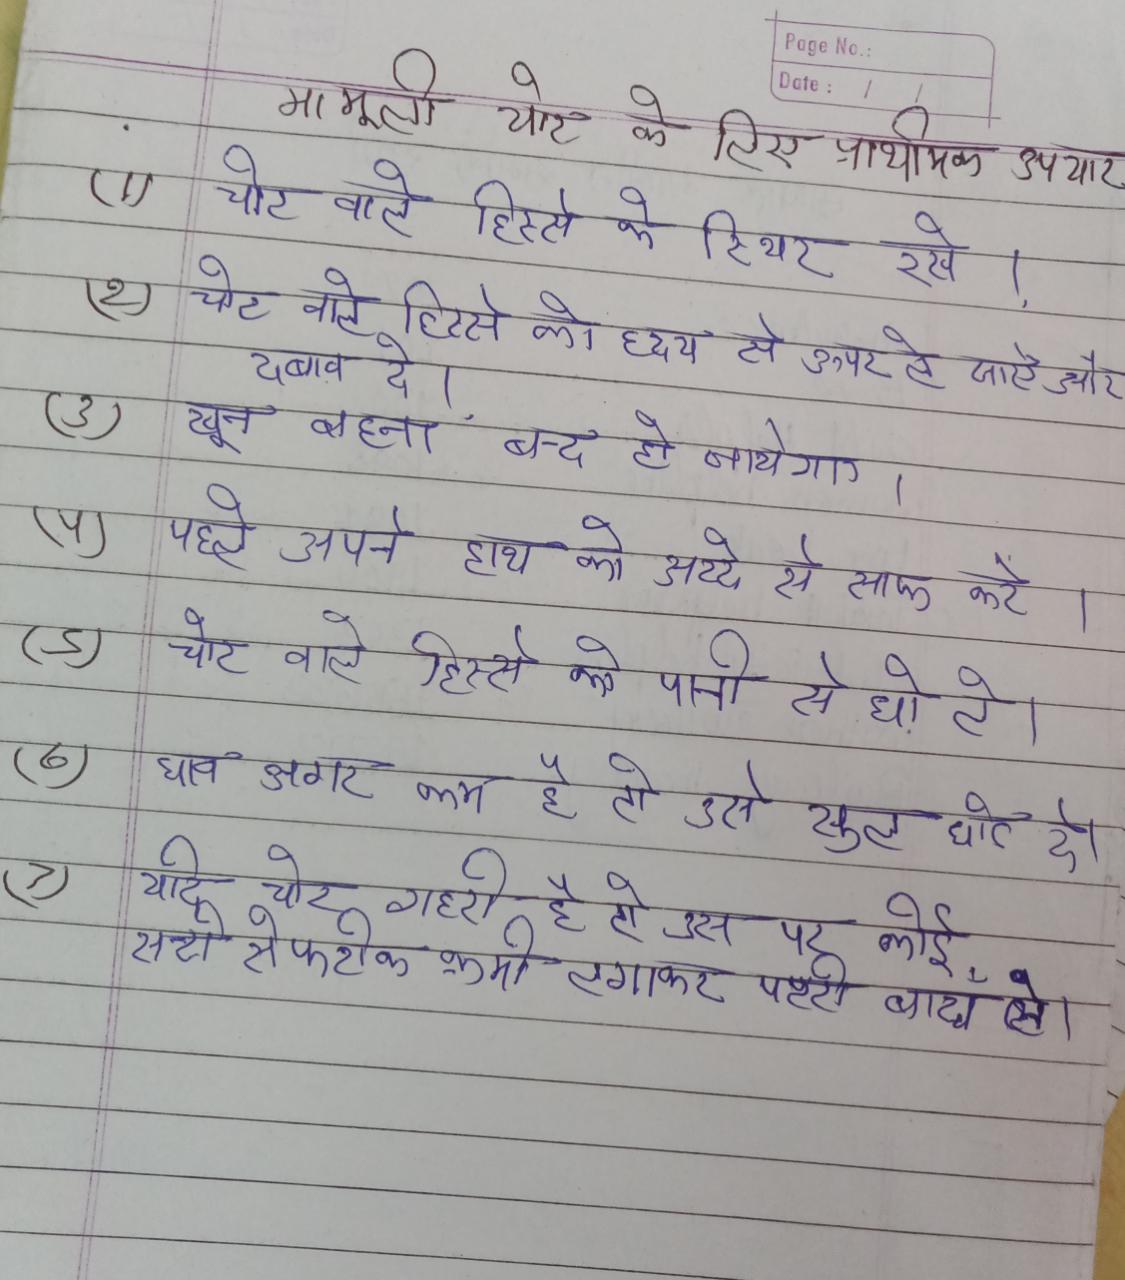 Page No.:
Date : / /
मामूली चोट के लिए प्राथमिक उपचार
(1) चोट वाले हिस्से के स्थिर रखे ।
(2) चोट वाले हिस्से को हृदय से ऊपर ले जाएँ और
दबाव दे ।
(3) खून बहना बन्द हो जायेगा ।
(4) पहले अपने हाथ को अच्छे से साफ करें ।
(5) चोट वाले हिस्से को पानी से धो ले ।
(6) घाव अगर कम है तो उसे खुला छोड़ दे।
(7) यदि चोट गहरी है तो उस पर कोई
एन्टी सेफटीक क्रमी लगाकर पट्टी बाधँ ले।